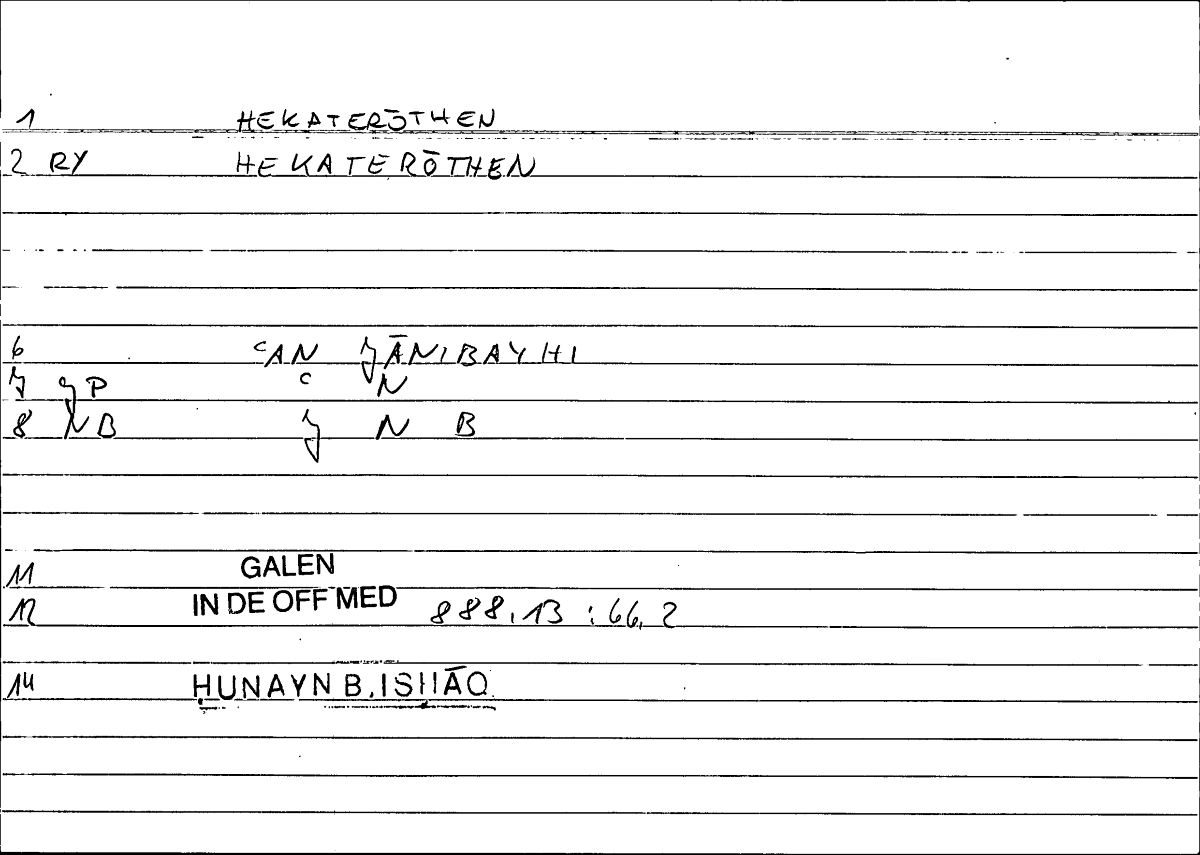 1 HEKATERŌTHEN
2 RY HEKATERŌTHEN
6 ʿAN ǦĀNIBAYHI
7 ǦP ʿ N
8 NB Ǧ N B
11 GALEN
12 IN DE OFF MED 888,13 : 66,2
14 ḤUNAYN B. ISḤĀQ